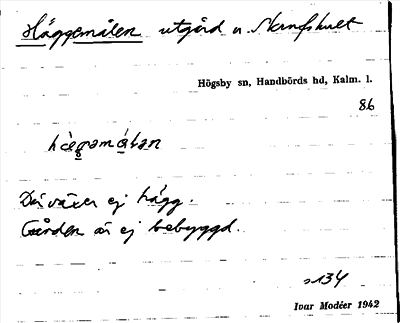 Häggemålen utgård u. Skrufshult
Högsby sn, Handbörds hd, Kalm. l.
86
Där växer ej hägg.
Gården är ej bebyggd.
s134
Ivar Modéer 1942